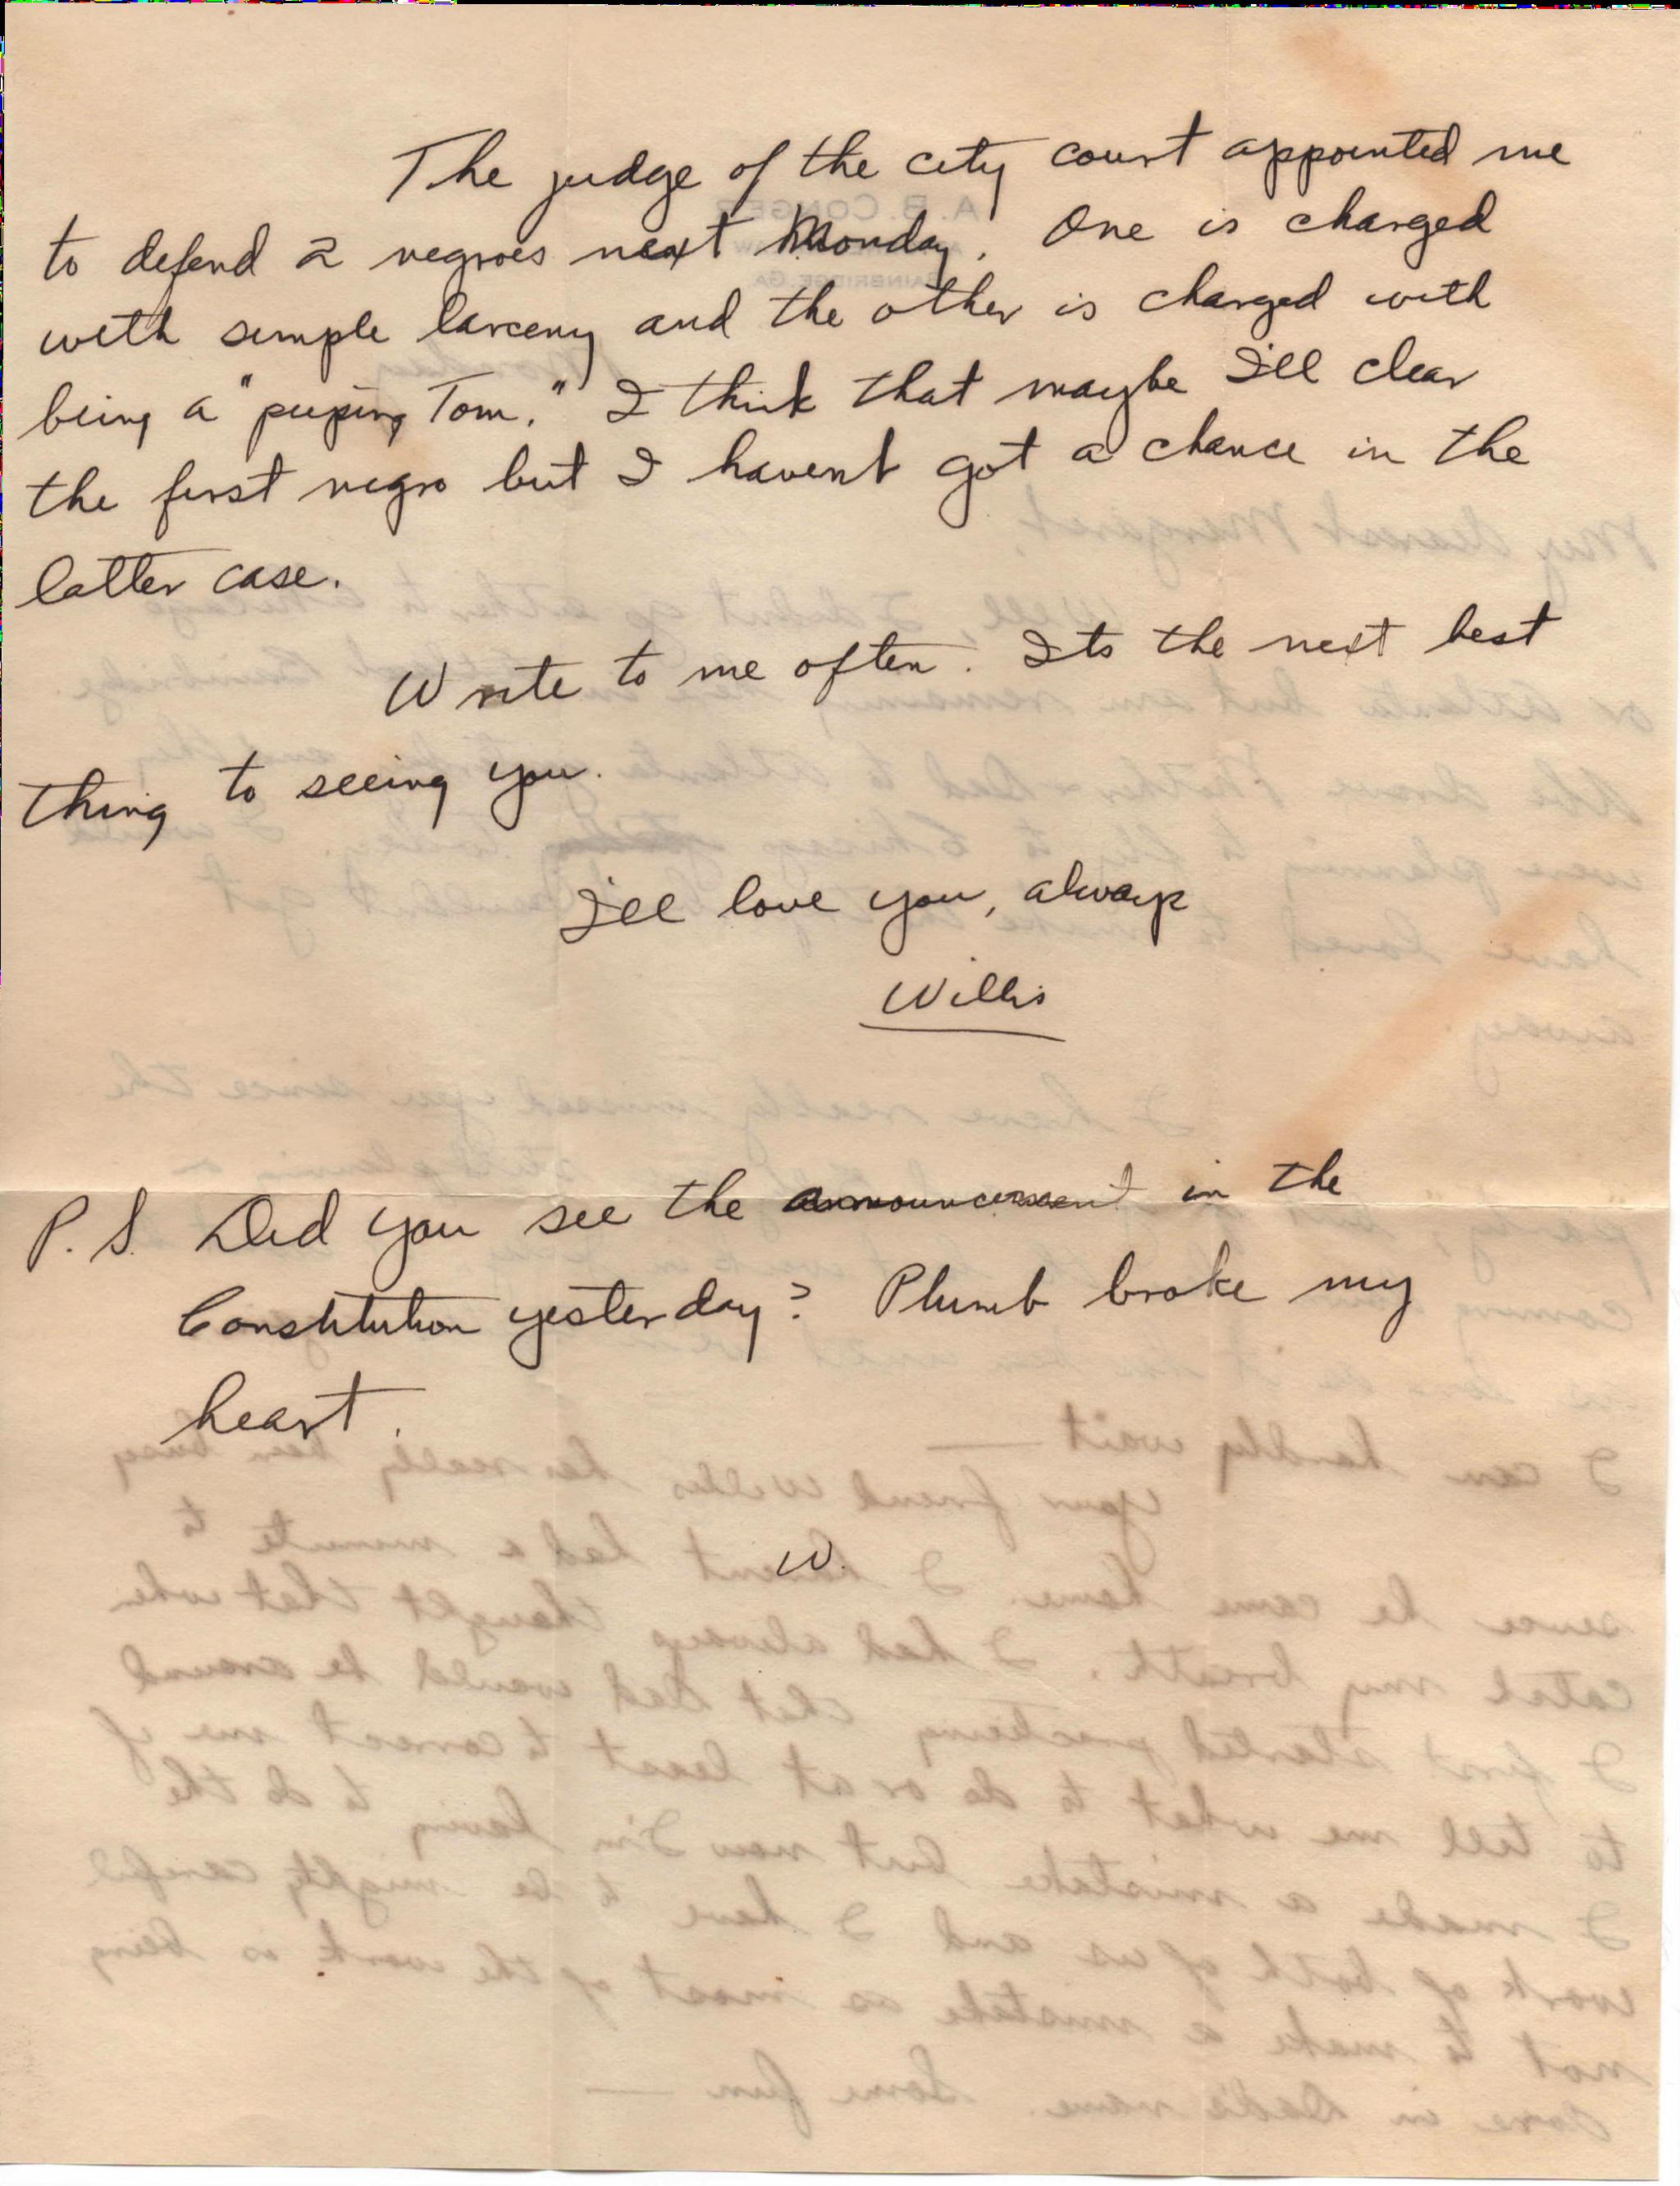 The judge of the city court appointed me
to defend 2 negroes next Monday. One is charged
with simple larceny and the other is charged with
being a "peeping Tom." I think that maybe I'll clear
the first negro but I havent got a chance in the
latter case.
Write to me often. Its the next best
thing to seeing you.
I'll love you, always
Willis
P.S. Did you see the announcement in the
Constitution yesterday? Plumb broke my
heart.
W.